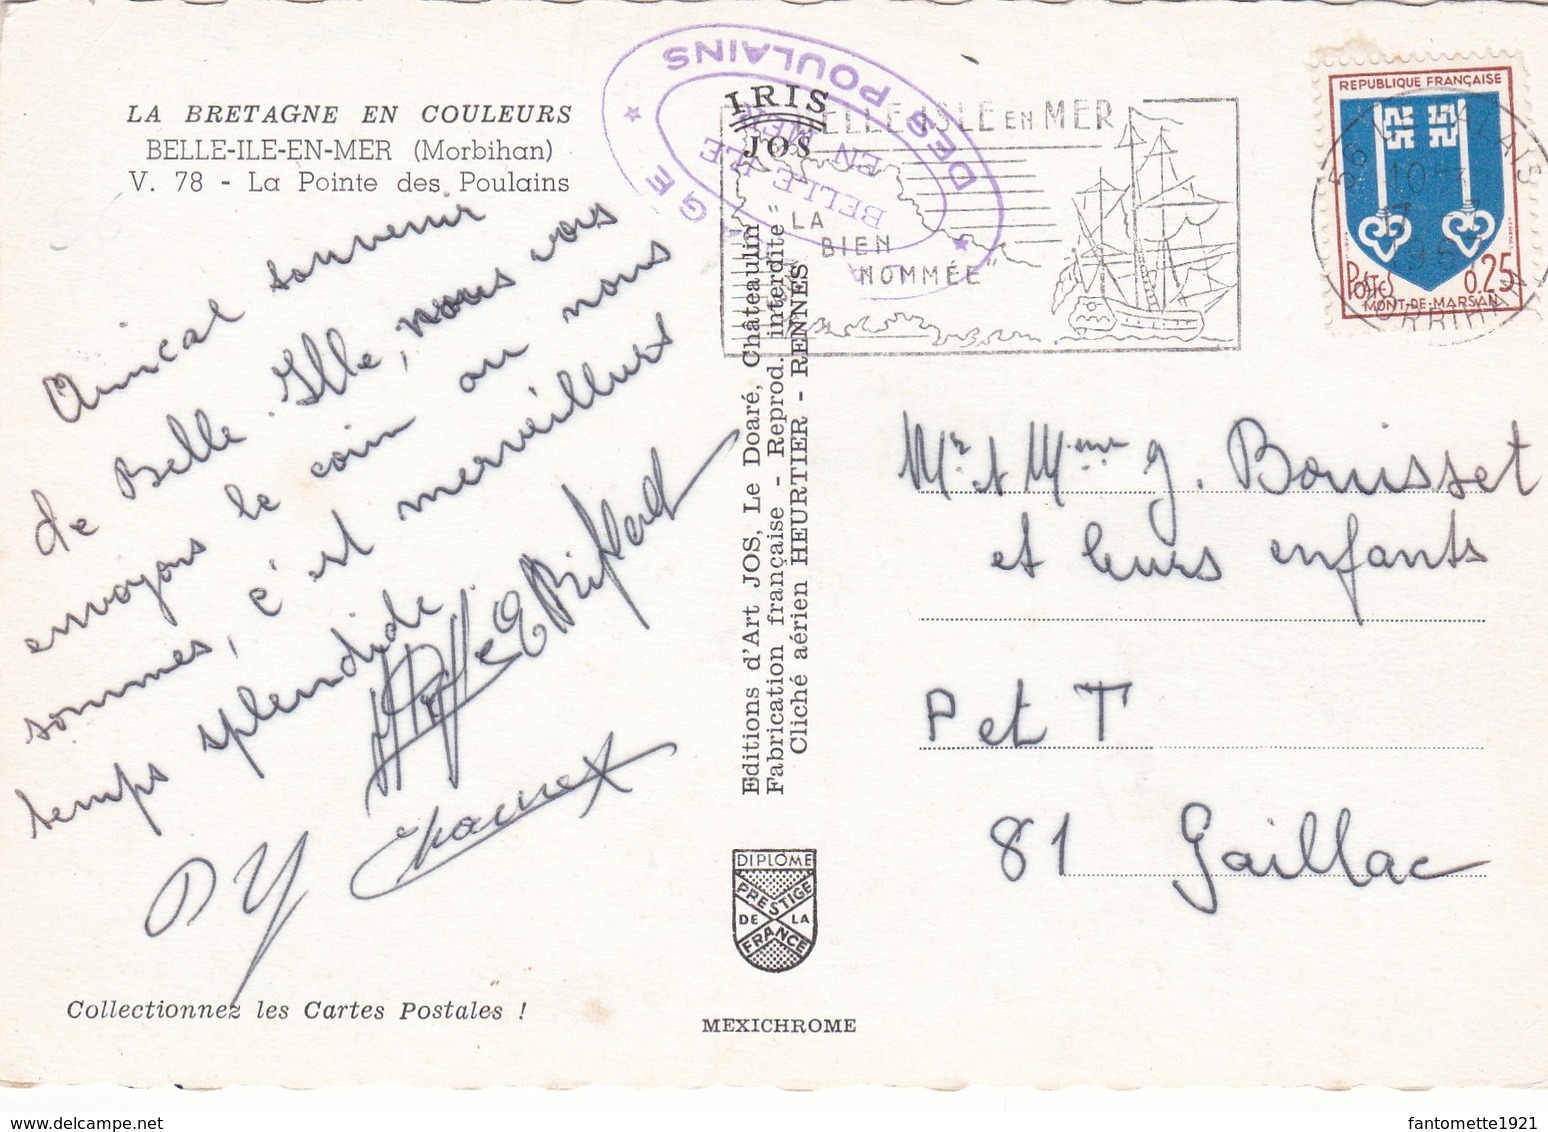 LA BRETAGNE EN COULEURS
BELLE-ILE-EN-MER (Morbihan)
V. 78 - La Pointe des Poulains
Amical souvenir
de Belle-Isle, nous vous
envoyons le coin où nous
sommes, c'est merveilleux
temps splendide
Collectionnez les Cartes Postales !
IRIS
JOS
Editions d'Art JOS, Le Doaré, Châteaulin
Fabrication française - Reprod. interdite
Cliché aérien HEURTIER - RENNES
DIPLÔME
PRESTIGE
DE LA
FRANCE
MEXICHROME
DES POULAINS
BELLE ILE
EN MER
BELLE-ISLE EN MER
"LA
BIEN
NOMMÉE"
REPUBLIQUE FRANÇAISE
POSTES
0,25
MONT-DE-MARSAN
Mr et Mme G. Bouisset
et leurs enfants
P et T
81 Gaillac
fantomette1921